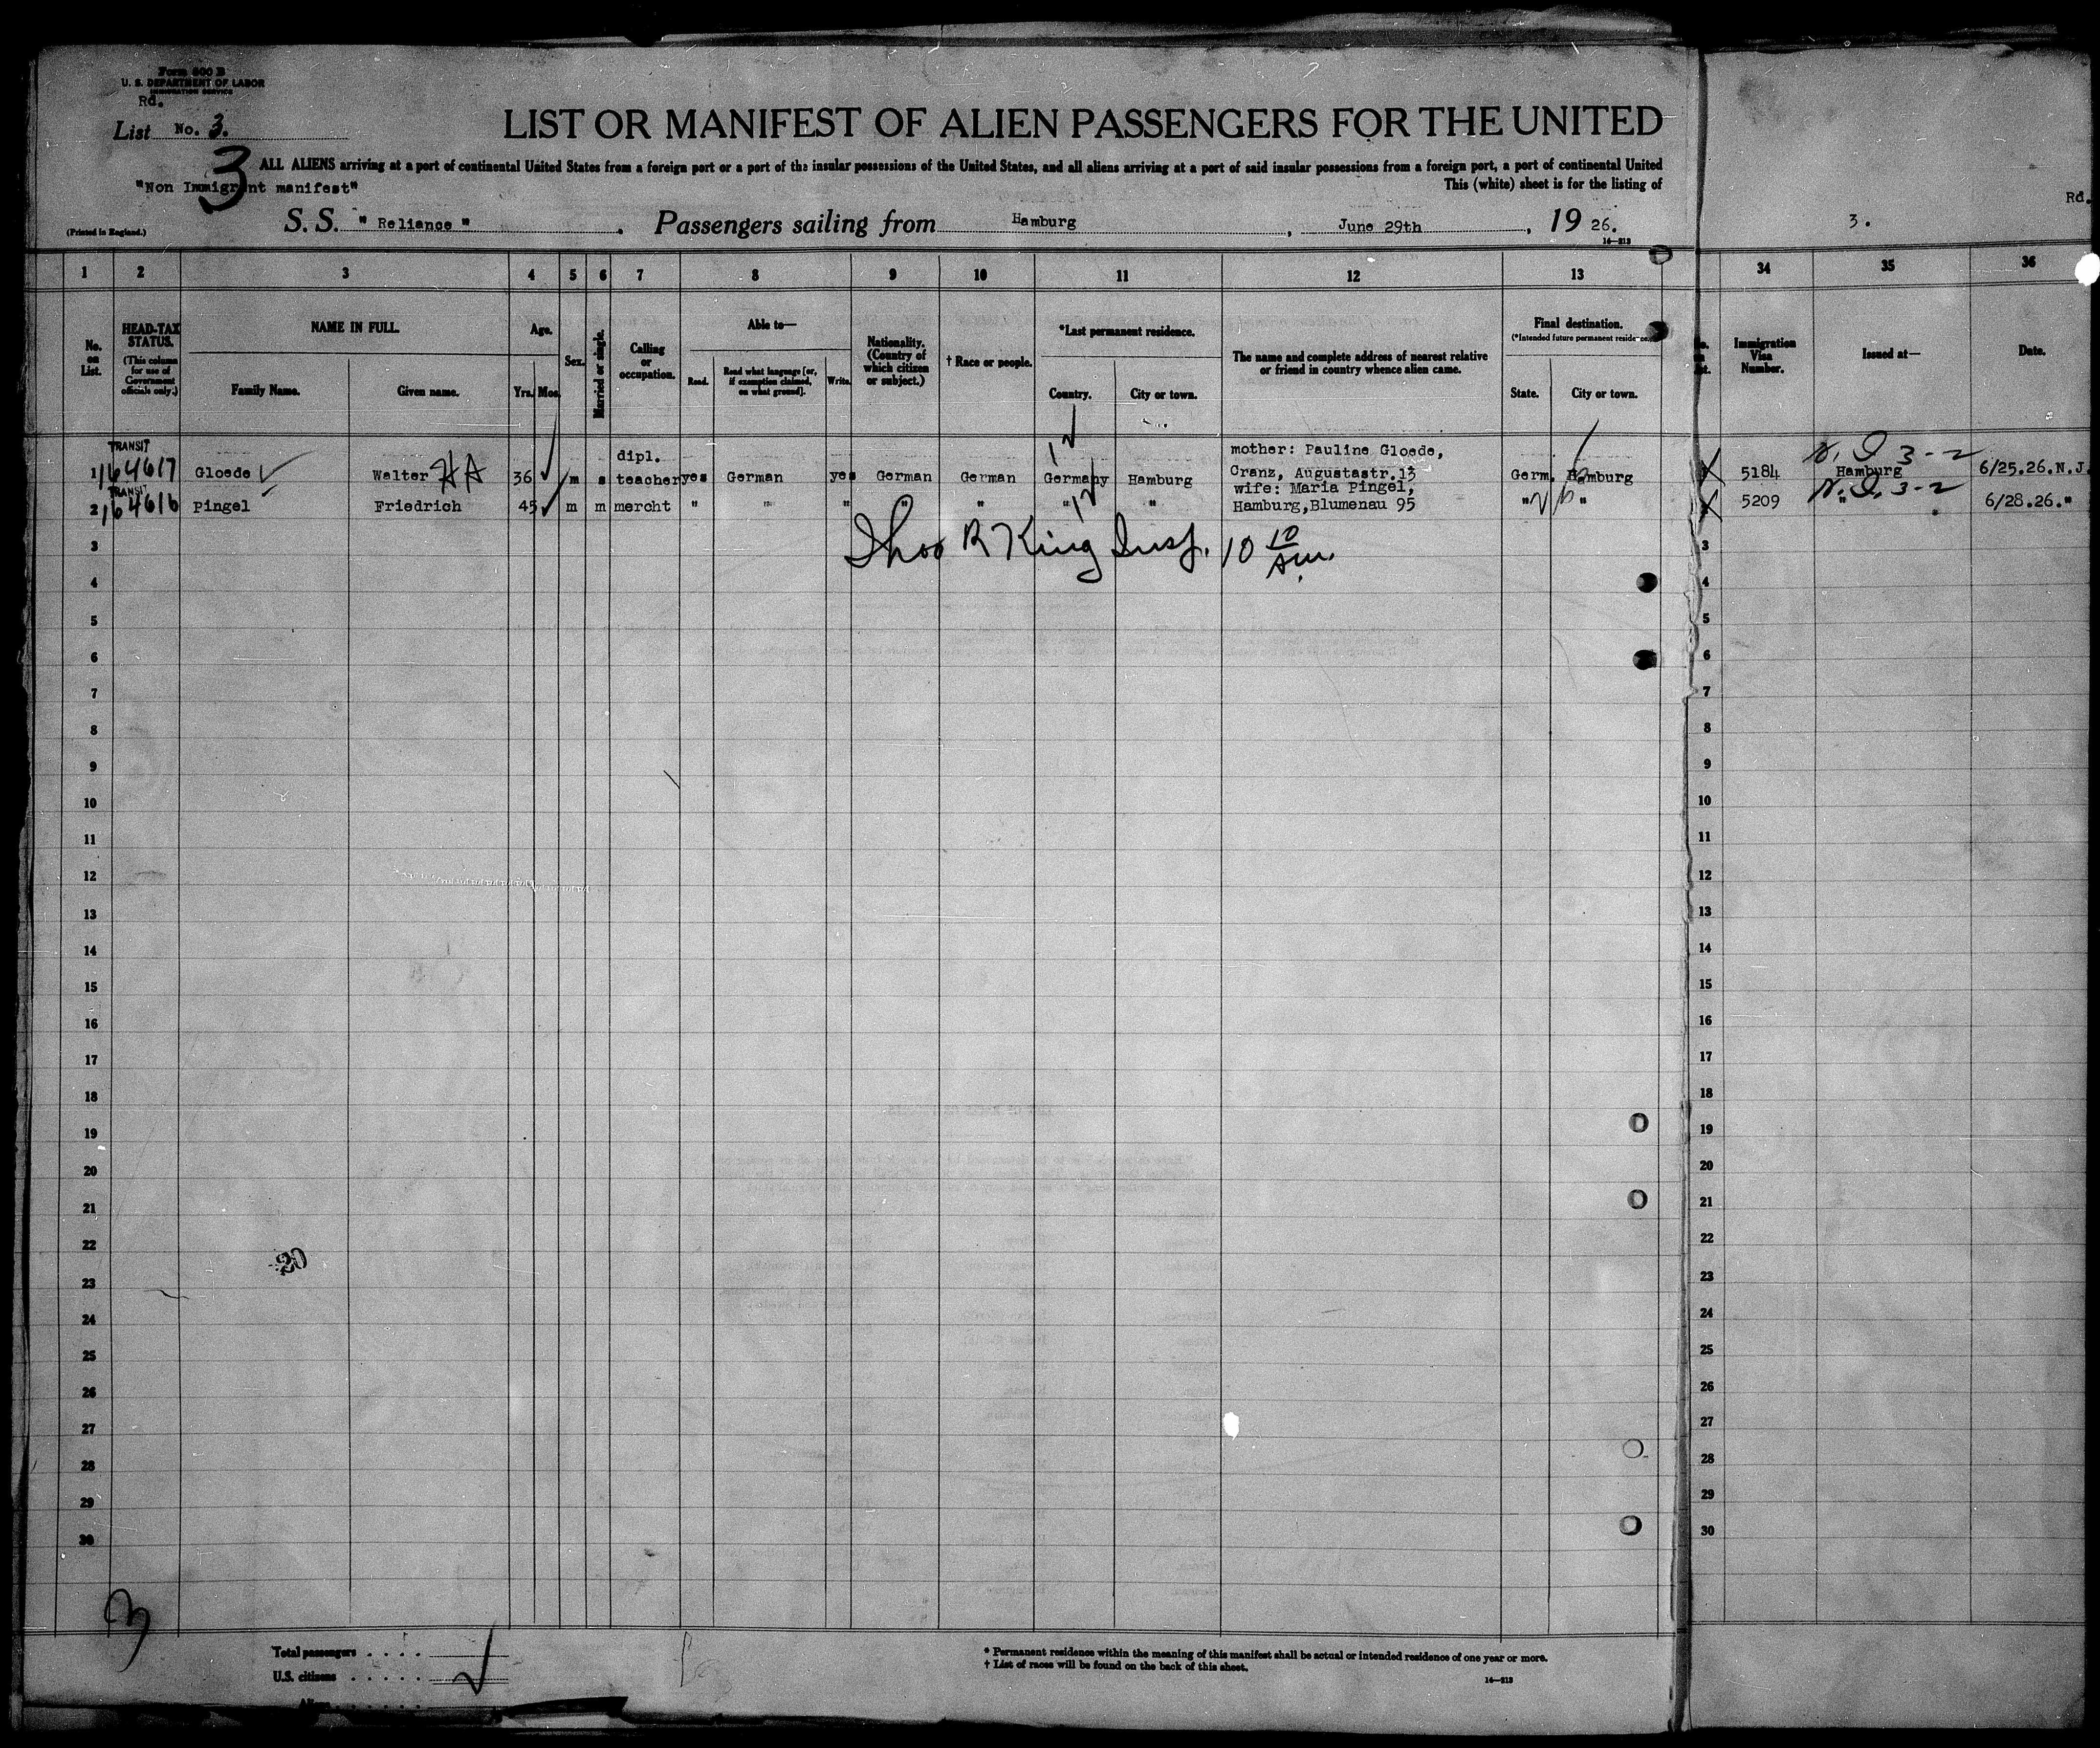 Form 600 B
U. S. DEPARTMENT OF LABOR
IMMIGRATION SERVICE
Rd.
List No. 3.
LIST OR MANIFEST OF ALIEN PASSENGERS FOR THE UNITED
3
ALL ALIENS arriving at a port of continental United States from a foreign port or a port of the insular possessions of the United States, and all aliens arriving at a port of said insular possessions from a foreign port, a port of continental United
"Non Immigrant manifest"
This (white) sheet is for the listing of
Rd.
(Printed in England.)
S. S. " Reliance " . Passengers sailing from Hamburg , June 29th , 19 26.
3.
14—213
1 2 3 4 5 6 7 8 9 10 11 12 13 34 35 36
No. on List.
HEAD-TAX STATUS.
(This column for use of Government officials only.)
NAME IN FULL.
Family Name. Given name.
Age.
Yrs. Mos.
Sex.
Married or single.
Calling or occupation.
Able to—
Read. Read what language [or, if exemption claimed, on what ground]. Write.
Nationality. (Country of which citizen or subject.)
† Race or people.
*Last permanent residence.
Country. City or town.
The name and complete address of nearest relative or friend in country whence alien came.
Final destination.
(*Intended future permanent residence.)
State. City or town.
Immigration Visa Number.
Issued at—
Date.
TRANSIT dipl. mother: Pauline Gloede,
1 164617 Gloede Walter 36 m s teacher yes German yes German German Germany Hamburg Cranz, Augustastr.13 Germ. Hamburg 5184 Hamburg 6/25.26.N.J.
TRANSIT wife: Maria Pingel,
2 164616 Pingel Friedrich 45 m m mercht " " " " " " " Hamburg, Blumenau 95 " " 5209 " 6/28.26."
Thos R King Insp. 10 10 Am.
3 3
4 4
5 5
6 6
7 7
8 8
9 9
10 10
11 11
12 12
13 13
14 14
15 15
16 16
17 17
18 18
19 19
20 20
21 21
22 22
23 23
24 24
25 25
26 26
27 27
28 28
29 29
30 30
3
Total passengers . . . .
U.S. citizens . . . . .
Aliens . . . . . .
* Permanent residence within the meaning of this manifest shall be actual or intended residence of one year or more.
† List of races will be found on the back of this sheet.
14—213